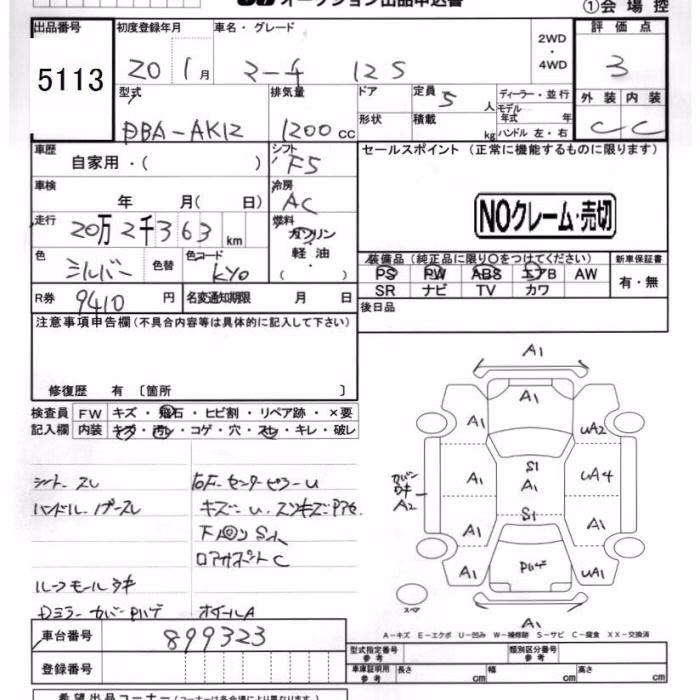 オークション出品申込書
①会場控
出品番号 初度登録年月 車名・グレード 2WD・4WD 評価点
5113 20 1月 マーチ 12S 3
型式 排気量 ドア 定員 5人 ディーラー・並行 外装 内装
形状 積載 kg モデル年式 年 ハンドル 左・右
DBA-AK12 1200cc C C
車歴 シフト セールスポイント (正常に機能するものに限ります)
自家用・( ) F5
車検 冷房
年 月( 日) AC
NOクレーム・売切
走行 燃料
20万2千363km ガソリン
軽油
・( )
色 色替 色コード 装備品(純正品に限り○をつけてください) 新車保証書
シルバー KY0 PS PW ABS エアB AW 有・無
SR ナビ TV カワ
R券 9410円 名変通知期限 月 日 後日品
注意事項申告欄(不具合内容等は具体的に記入して下さい)
修復歴 有 〔箇所 〕
検査員 FW キズ・飛石・ヒビ割・リペア跡・×要
記入欄 内装 キズ・汚レ・コゲ・穴・スレ・キレ・破レ
シート スレ
ハンドル
ルーフモール
Dミラーカバー
ホイールA
A1
A1
A1
UA2
S1
A1
A1
UA4
A2
S1
A1
A1
A1
UA1
A1
スペア
A-キズ E-エクボ U-凹み W-補修跡 S-サビ C-腐食 XX-交換済
車台番号 899323 型式指定番号 参考 類別区分番号 参考
登録番号 車庫証明用 参考 長さ cm 幅 cm 高さ cm
希望出品コーナー (コーナーは各会場により異なります)